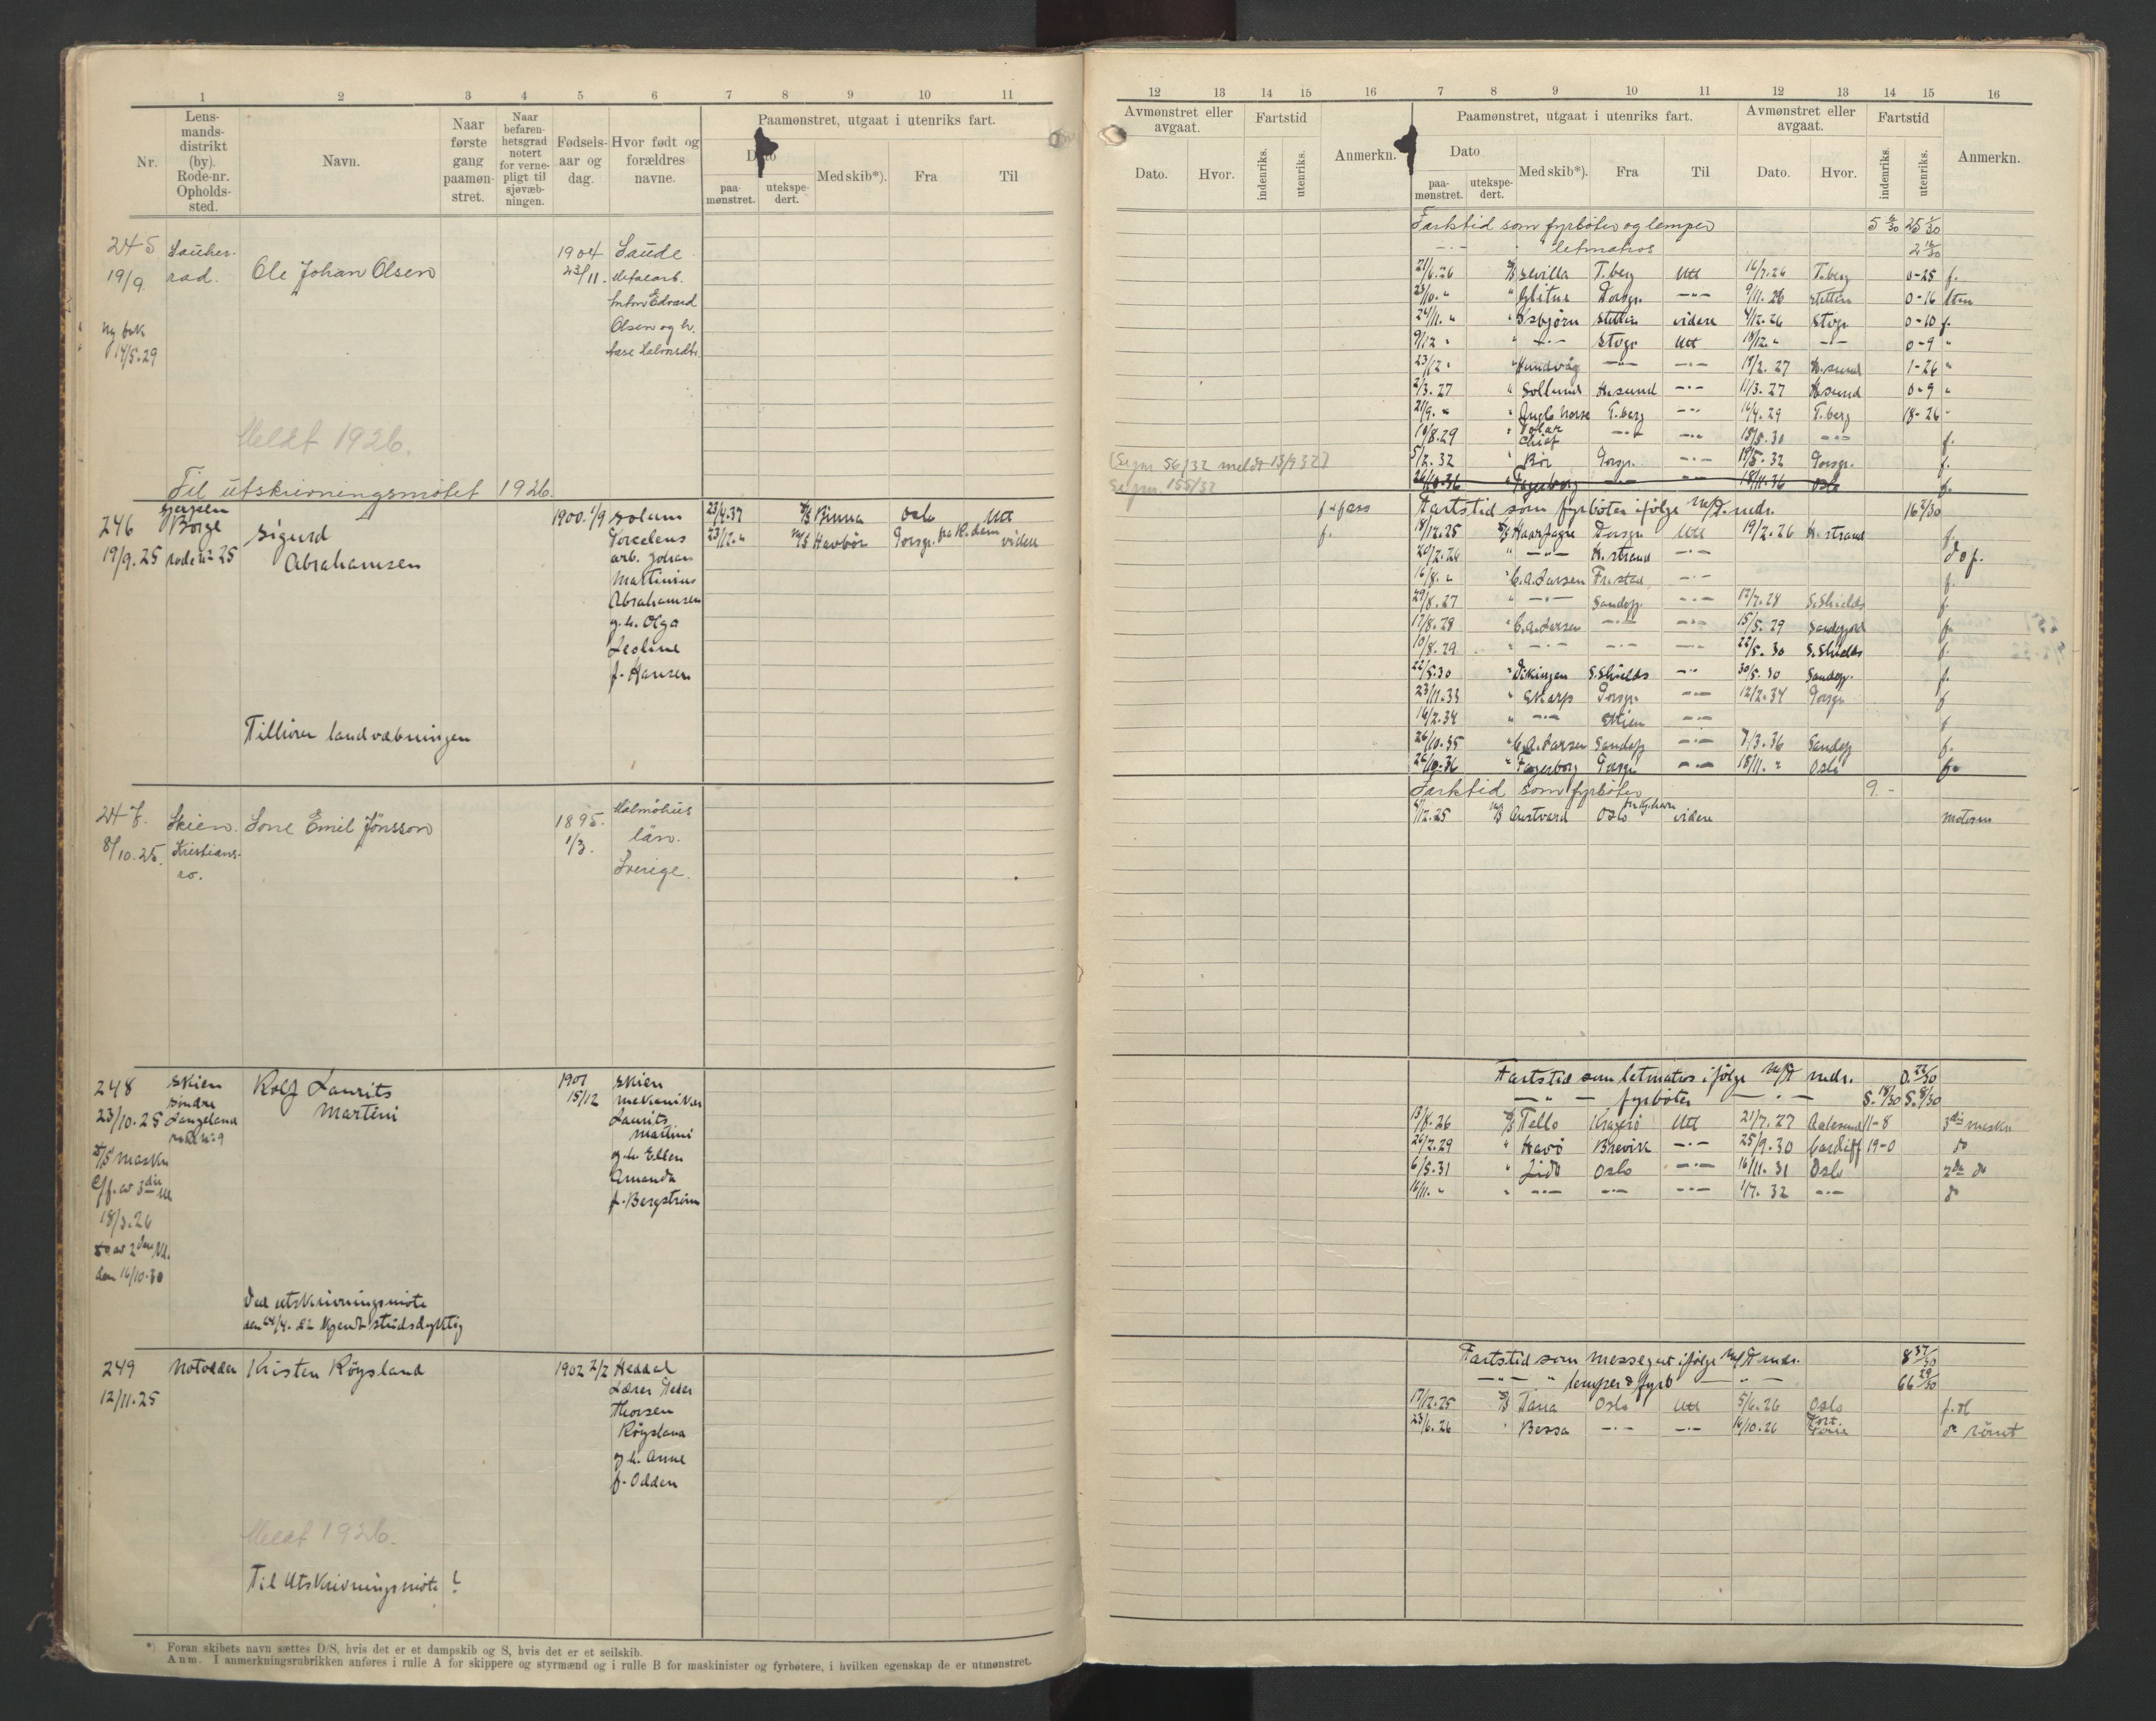 1 2 3 4 5 6 7 8 9 10 11
Nr.
Lens-
mands-
distrikt
(by).
Rode-nr.
Opholds-
sted.
Navn.
Naar
første
gang
paamøn-
stret.
Naar
befaren-
hetsgrad
notert
for verne-
pligt til
sjøvæb-
ningen.
Fødsels-
aar og
dag.
Hvor født og
forældres
navne.
Paamønstret, utgaat i utenriks fart.
Dato
paa-
mønstret.
utekspe-
dert.
Med skib*).
Fra
Til
245
19/9.
Ny bok
14/5.29
Lauher-
rad.
Ole Johan Olsen
1904
23/11.
Saude
Anton Edvard
Olsen og h.
Meldt 1926.
Til utskrivningsmötet 1926.
246
19/9.25
Gjerpen
Borge
rode nr 25
Sigurd
Abrahamsen
1900. 1/9
Solum
Porcelens
arb. Johan
Martinius
Abrahamsen
g.h. Olga
Leoline
f. Hansen
23/4.37 D/S Binna Oslo Utl
23/12." M/S Havbör Porsgr. fra R.dam videre
Tilhører landvæbningen
247.
8/10.25.
Skien.
Kristians-
ro.
Lone Emil Jönsson
1895.
1/3.
Malmöhus
län.
Sverige.
248
23/10.25
Skien
Søndre
Langeland
rode nr 9
Rolf Laurits
Martini
1901
15/12
Skien
mekaniker
Laurits
Martini
g.h. Ellen
Amanda
f. Bergström
18/3.26
den 16/10.30
Ved utskrivningsmöte
den 24/4.22 kjendt stridsdyktig
249
12/11.25
Notodden
Kristen Röysland
1902 2/2
Heddal
Lærer Peder
Thorsen
Röysland
g.h. Anne
f. Odden
Meldt 1926.
Til Utskrivningsmöte!
*) Foran skibets navn sættes D/S, hvis det er et dampskib og S, hvis det er et seilskib.
Anm. I anmerkningsrubrikken anføres i rulle A for skippere og styrmænd og i rulle B for maskinister og fyrbøtere, i hvilken egenskap de er utmønstret.
12 13 14 15 16 7 8 9 10 11 12 13 14 15 16
Avmønstret eller
avgaat.
Dato.
Hvor.
Fartstid
indenriks.
utenriks.
Anmerkn.
Paamønstret, utgaat i utenriks fart.
Dato
paa-
mønstret.
utekspe-
dert.
Med skib*).
Fra
Til
Avmønstret eller
avgaat.
Dato.
Hvor.
Fartstid
indenriks.
utenriks.
Anmerkn.
Fartstid som fyrböter og lemper
letmatros
21/6.26 D/S Sevilla T.berg Utl 16/7.26 T.berg 0-25 f.
23/10." " Glitne Porsgr. -"- 9/11.26 Stettin 0-16 lem
24/11." " Isbjörn Stettin videre 4/12.26 Stvgr 0-10 f.
9/12 " " -"- Stvgr Utl 18/12." -"- 0-9 "
23/12 " " Hundvåg -"- -"- 19/2.27 H.sund 1-26 "
2/3.27 " Solund H.sund -"- 11/3.27 H.sund 0-9 "
21/9." " Anglo Norse T.berg -"- 16/4.29 T.berg 18-26 "
10/8.29 " Polar Chief -"- -"- 15/5.30 -"- f.
(Sign 56/32 meldt 13/9 32)
5/2.32 " Bör Porsgr. -"- 19/5.32 Porsgr. f.
Sign. 155/32
26/10.36 " Fagerborg -"- -"- 18/11.36 Oslo f.
Fartstid som fyrböter ifölge N/F. mdr. 16 2/30
18/12.25 D/S Haarfagre Porsgr. Utl 19/2.26 H.strand f.
20/2.26 " -"- H.strand -"- do f.
16/8." " C.A.Larsen Fr.stad -"- f.
29/8.27 " -"- Sandefj. -"- 12/7.28 S.Shields f.
17/8.28 " C.A.Larsen -"- -"- 15/5.29 Sandefjord f.
10/8.29 " -"- -"- -"- 22/5.30 S.Shields f.
22/5.30 " Vikingen S.Shields -"- 30/5.30 Sandefj. f.
23/11.33 " Skarp Porsgr. -"- 12/2.34 Porsgr. f
16/2.34 " -"- Skien -"- f
26/10.35 " C.A.Larsen Sandefj -"- 7/3.36 Sandefj f.
26/10.36 " Fagerborg Porsgr. -"- 18/11." Oslo f.
Fartstid som fyrböter 9.-
Oslo fra Kj.havn videre
Fartstid som letmatros ifölge N/F mdr. 0.22/30
-"- fyrböter -"-
13/8.26 D/S Tello Kragerö Utl 21/7.27 Aalesund 11-8 3die maskn
26/2.29 " Havö Brevik -"- 25/9.30 Cardiff 19-0 do
6/5.31 " Lido Oslo -"- 16/11.31 Oslo 2de do
16/11." " -"- -"- -"- 1/7.32 -"- do
Fartstid som messegut ifölge N/F mdr.
-"- " lemper & fyrb -"- 66 29/30
17/12.25 D/S Oslo Utl 5/6.26 Oslo
23/6.26 " Bessa -"- -"- 16/10.26